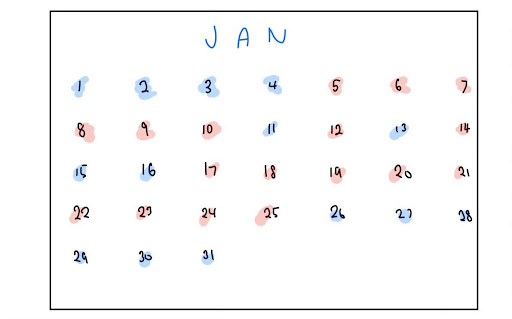 JAN
1 2 3 4 5 6 7
8 9 10 11 12 13 14
15 16 17 18 19 20 21
22 23 24 25 26 27 28
29 30 31